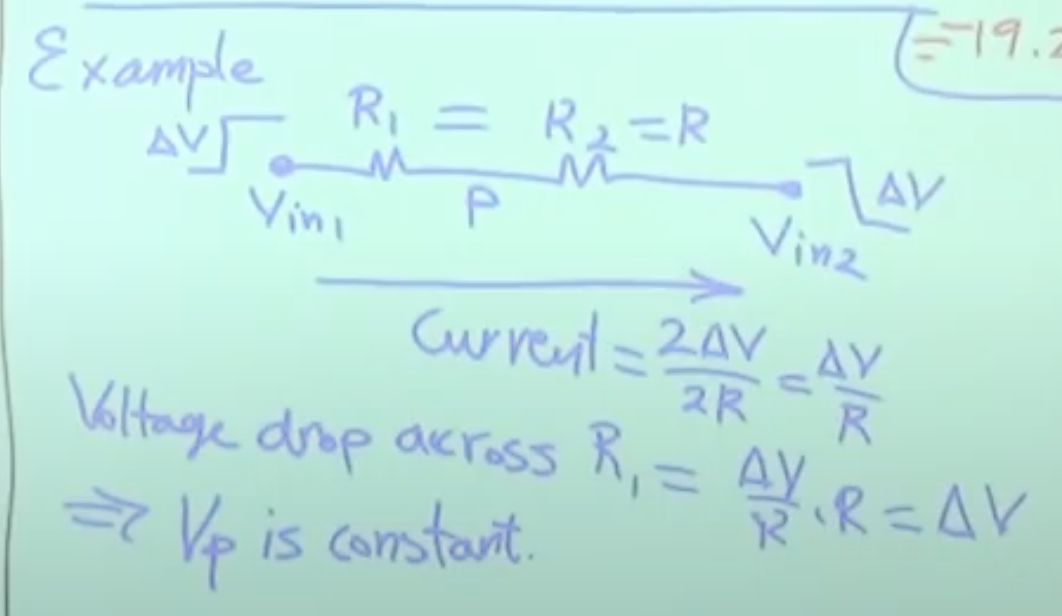 = -19.2
Example
ΔV R₁ = R₂ = R
Vin₁ P Vin₂ ΔV
Current = 2ΔV/2R = ΔV/R
Voltage drop across R₁ = ΔV/R · R = ΔV
⇒ Vp is constant.